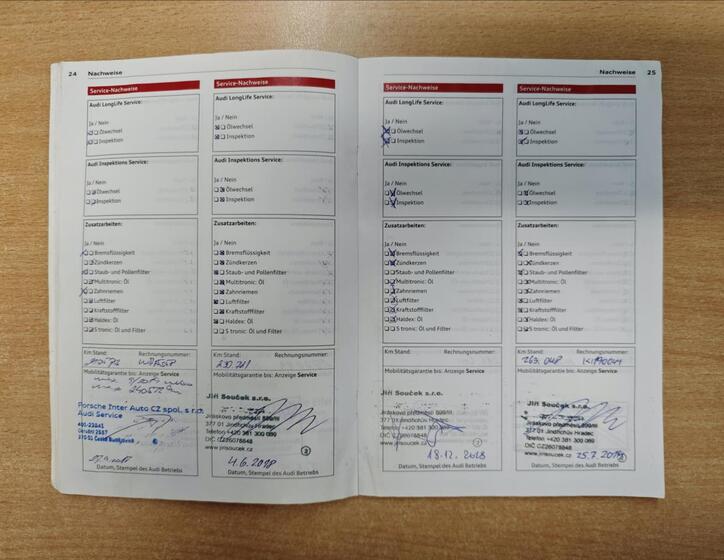 24 Nachweise
Service-Nachweise
Audi LongLife Service:
Ja / Nein
Ölwechsel
Inspektion
Audi Inspektions Service:
Ja / Nein
Ölwechsel
Inspektion
Zusatzarbeiten:
Ja / Nein
Bremsflüssigkeit
Zündkerzen
Staub- und Pollenfilter
Multitronic: Öl
Zahnriemen
Luftfilter
Kraftstofffilter
Haldex: Öl
S tronic: Öl und Filter
Km Stand: Rechnungsnummer:
Mobilitätsgarantie bis: Anzeige Service
Porsche Inter Auto CZ spol. s r.o.
Audi Service
Datum, Stempel des Audi Betriebs
Service-Nachweise
Audi LongLife Service:
Ja / Nein
Ölwechsel
Inspektion
Audi Inspektions Service:
Ja / Nein
Ölwechsel
Inspektion
Zusatzarbeiten:
Ja / Nein
Bremsflüssigkeit
Zündkerzen
Staub- und Pollenfilter
Multitronic: Öl
Zahnriemen
Luftfilter
Kraftstofffilter
Haldex: Öl
S tronic: Öl und Filter
Km Stand: Rechnungsnummer:
Mobilitätsgarantie bis: Anzeige Service
Jiří Souček s.r.o.
Jiráskovo předměstí
377 01 Jindřichův Hradec
Telefon: +420 381 300 089
DIČ CZ26078848
www.jirisoucek.cz
4.6.2018
Datum, Stempel des Audi Betriebs
Nachweise 25
Service-Nachweise
Audi LongLife Service:
Ja / Nein
Ölwechsel
Inspektion
Audi Inspektions Service:
Ja / Nein
Ölwechsel
Inspektion
Zusatzarbeiten:
Ja / Nein
Bremsflüssigkeit
Zündkerzen
Staub- und Pollenfilter
Multitronic: Öl
Zahnriemen
Luftfilter
Kraftstofffilter
Haldex: Öl
S tronic: Öl und Filter
Km Stand: Rechnungsnummer:
Mobilitätsgarantie bis: Anzeige Service
Jiří Souček s.r.o.
Jiráskovo předměstí
377 01 Jindřichův Hradec
18.12.2018
Datum, Stempel des Audi Betriebs
Service-Nachweise
Audi LongLife Service:
Ja / Nein
Ölwechsel
Inspektion
Audi Inspektions Service:
Ja / Nein
Ölwechsel
Inspektion
Zusatzarbeiten:
Ja / Nein
Bremsflüssigkeit
Zündkerzen
Staub- und Pollenfilter
Multitronic: Öl
Zahnriemen
Luftfilter
Kraftstofffilter
Haldex: Öl
S tronic: Öl und Filter
Km Stand: Rechnungsnummer:
Mobilitätsgarantie bis: Anzeige Service
Jiří Souček s.r.o.
Jiráskovo předměstí
377 01 Jindřichův Hradec
Datum, Stempel des Audi Betriebs